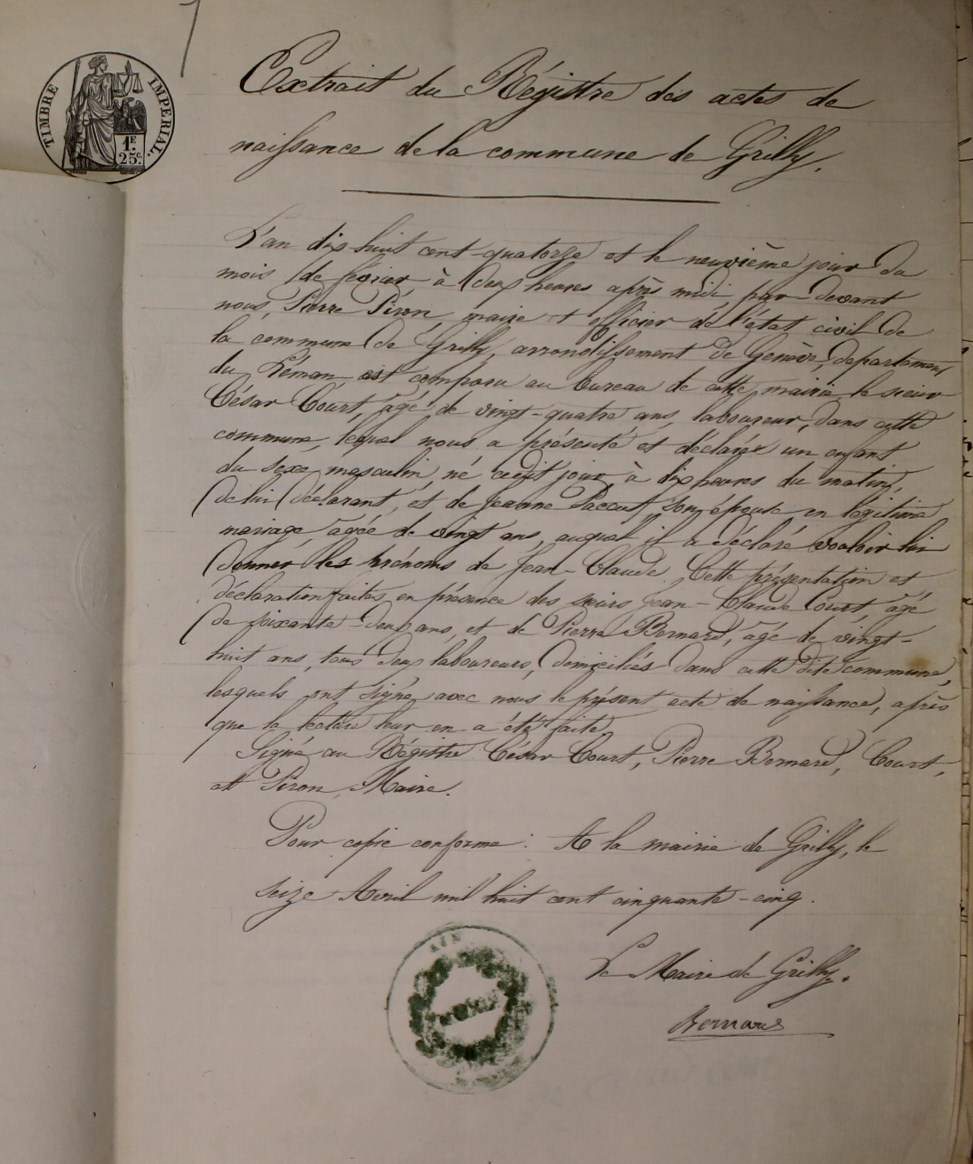 TIMBRE IMPERIAL.
1F.
25c.
Extrait du Régistre des actes de
naissance de la commune de Grilly.
L'an dix-huit cent-quatorze et le neuvième jour du
mois de fevrier à deux heures après midi par-devant
nous, Pierre Piron, maire et officier de l'état civil de
la commune de Grilly, arrondissement de Genève, departement
du Léman, est comparu au bureau de cette mairie le sieur
César Court, âgé de vingt-quatre ans, laboureur, dans cette
commune, lequel nous a présenté et déclaré un enfant
du sexe masculin, né cejourd, à dix heures du matin,
de lui déclarant, et de Jeanne Paccut, son épouse en légitime
mariage, agée de vingt ans, auquel il a déclaré vouloir lui
donner les prénoms de Jean-Claude. Cette présentation et
déclaration faites en présence des sieurs Jean-Claude Court, âgé
de soixante-deux ans, et de Pierre Bernard, âgé de vingt-
huit ans, tous deux laboureurs, domiciliés dans cette dite commune,
lesquels ont signé avec nous le présent acte de naissance, après
que la lecture leur en a été faite
Signé au Régistre César Court, Pierre Bernard, Court,
et Piron, Maire.
Pour copie conforme : A la mairie de Grilly, le
seize Avril mil huit cent cinquante-cinq.
AIN
Le Maire de Grilly.
Bernard